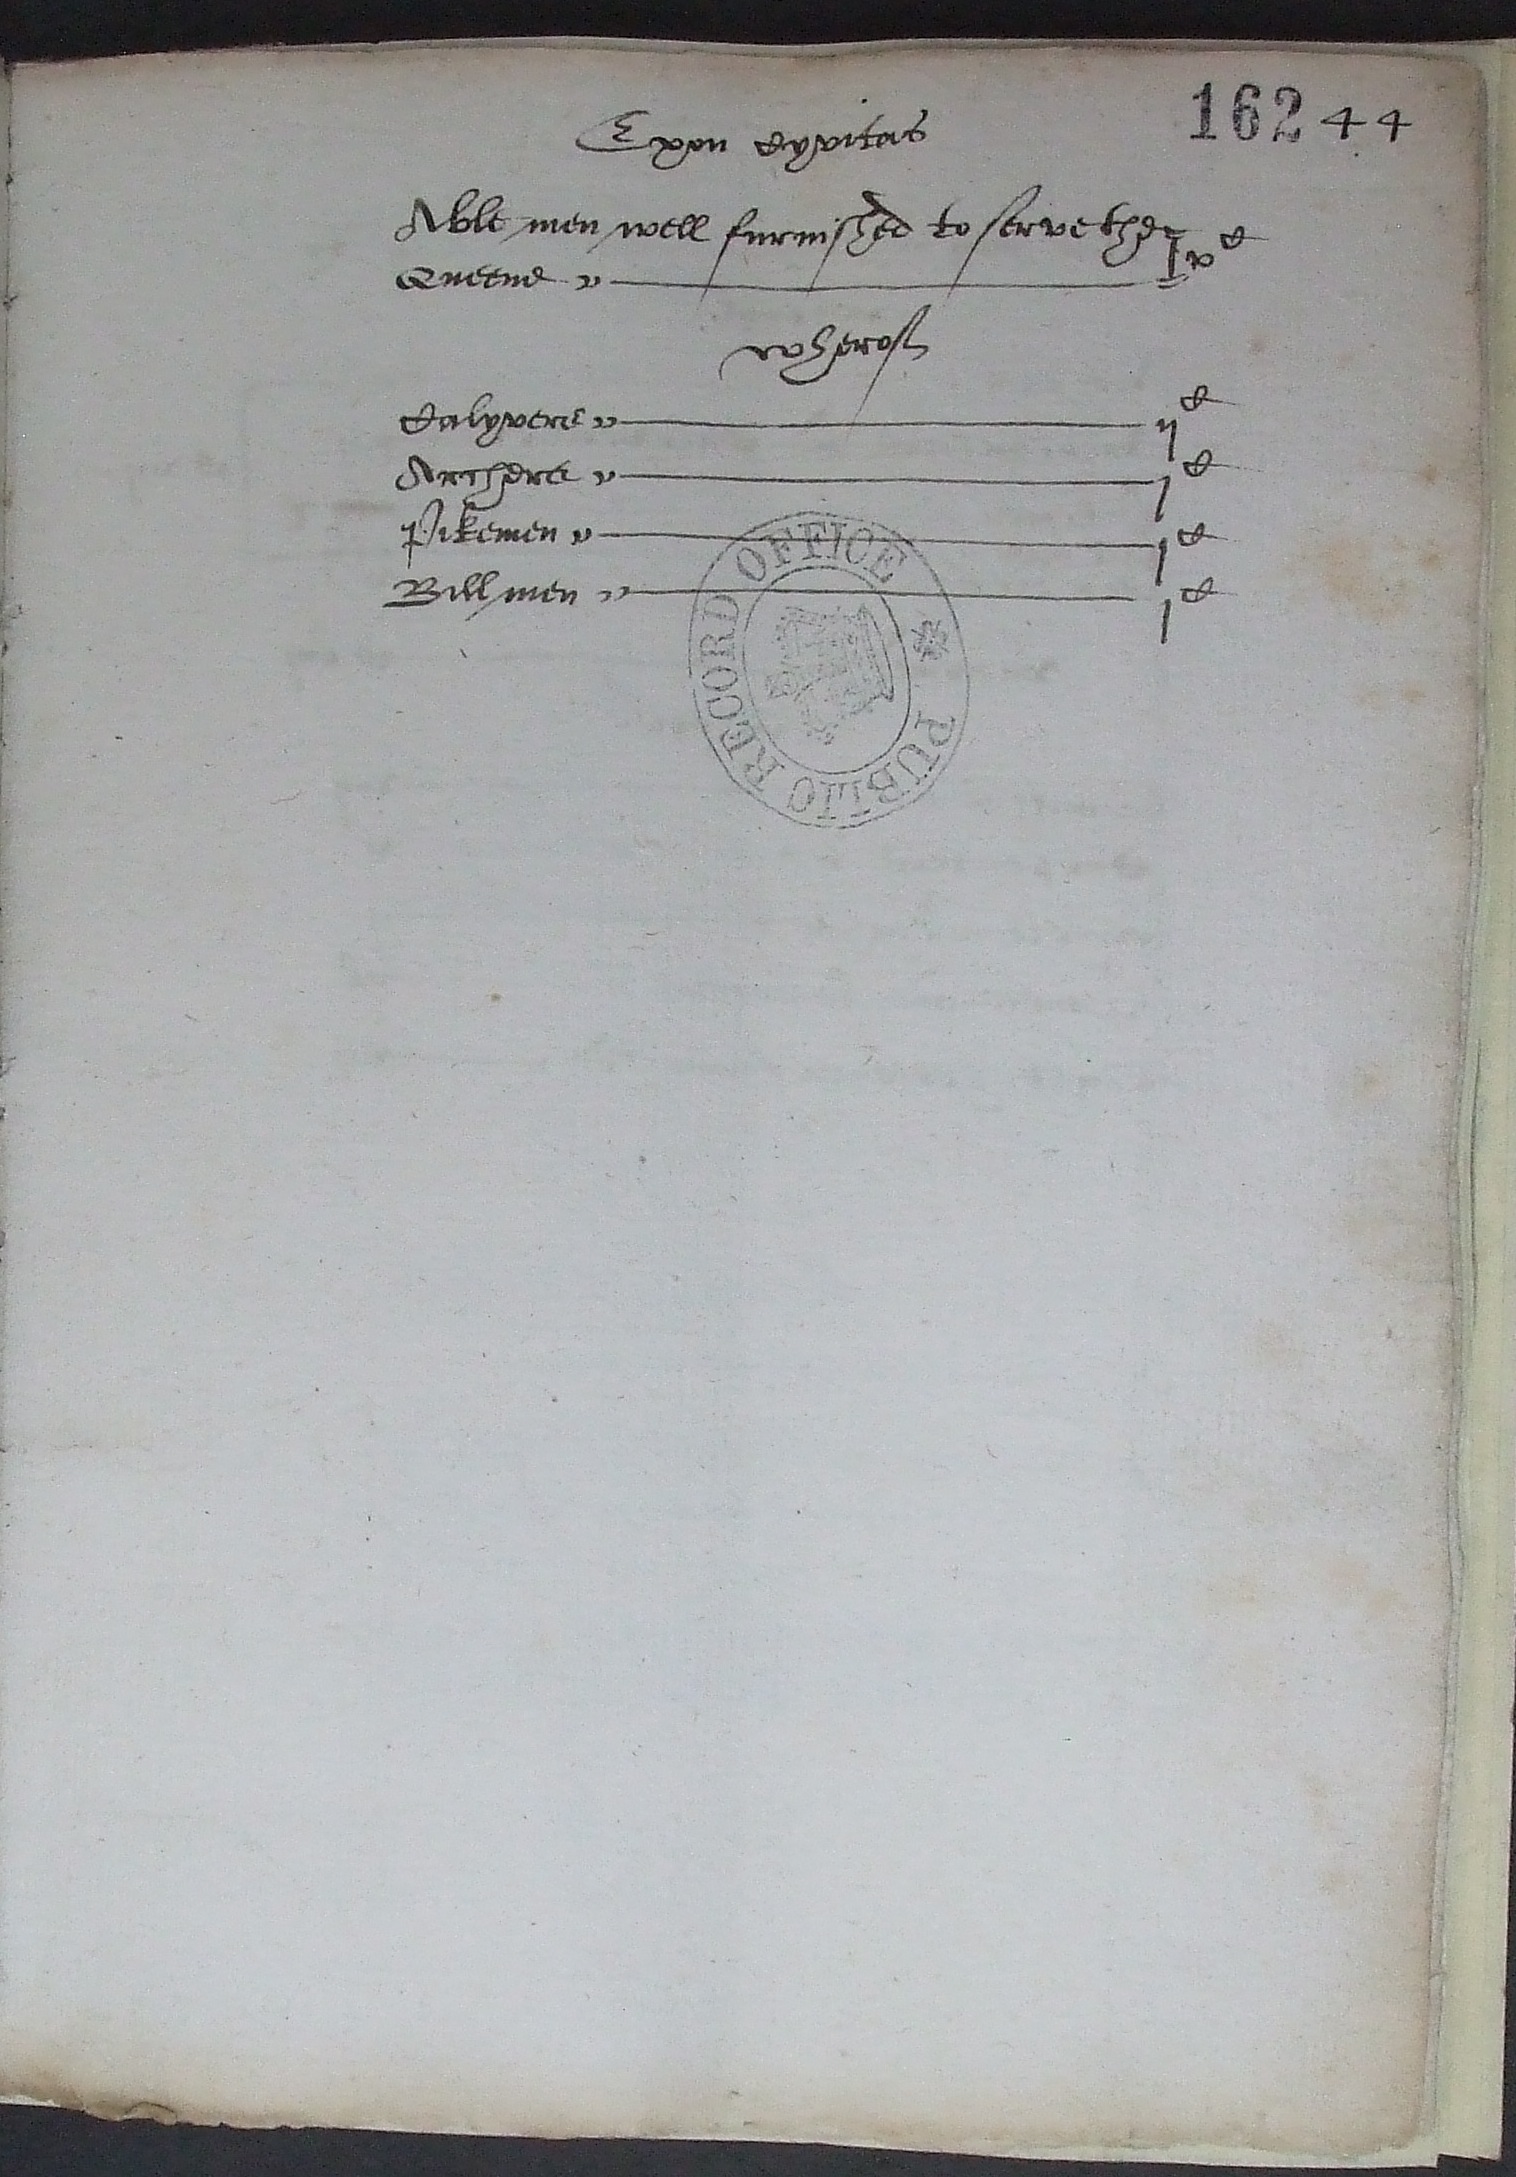 162 44
Exon Cyvitas
Able men well furnished to serve the
Queene v^C
wherof
Calyvers ij^C
Archers j^C
Pikemen j^C
Bill men j^C
PUBLIC RECORD OFFICE